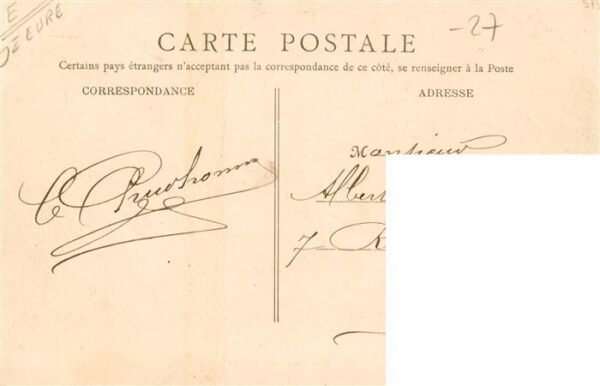 E
EURE
-27
CARTE POSTALE
Certains pays étrangers n'acceptant pas la correspondance de ce côté, se renseigner à la Poste
CORRESPONDANCE
ADRESSE
Prudhomme
Monsieur
Albert
7